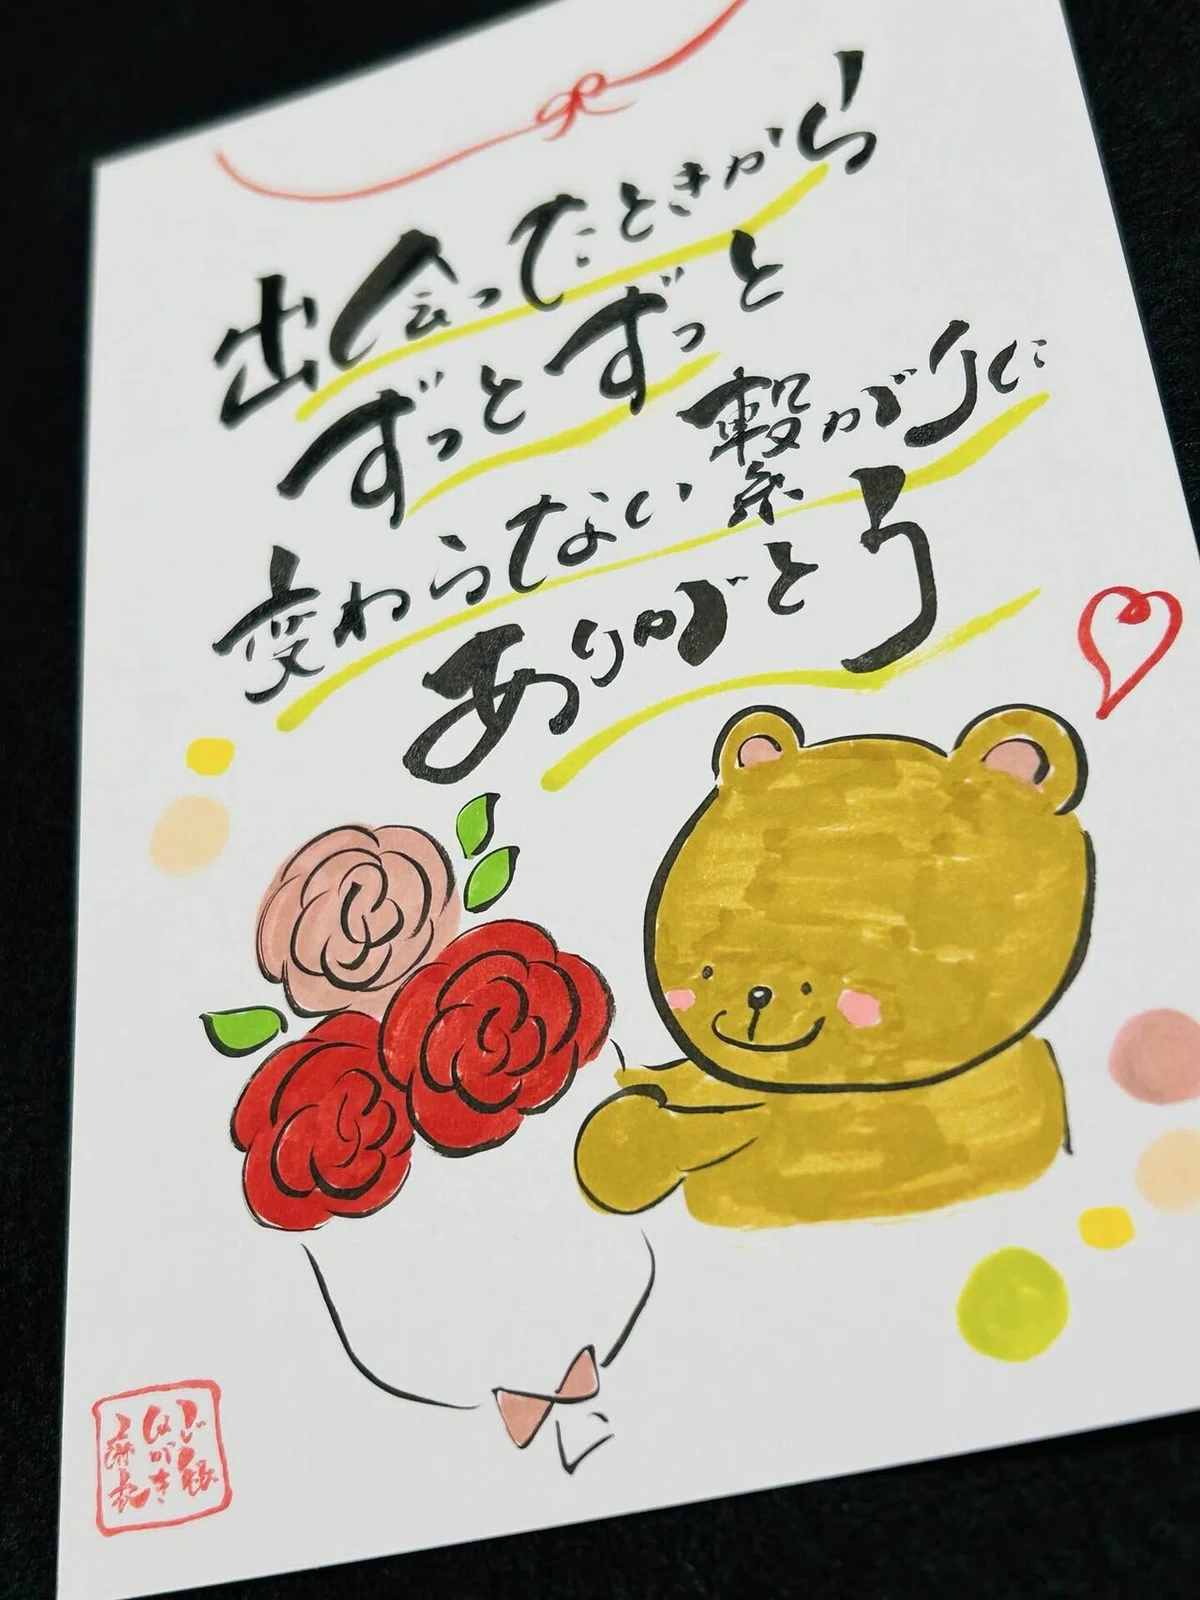 出会ったときから
ずっとずっと
変わらない繋がりに
ありがとう